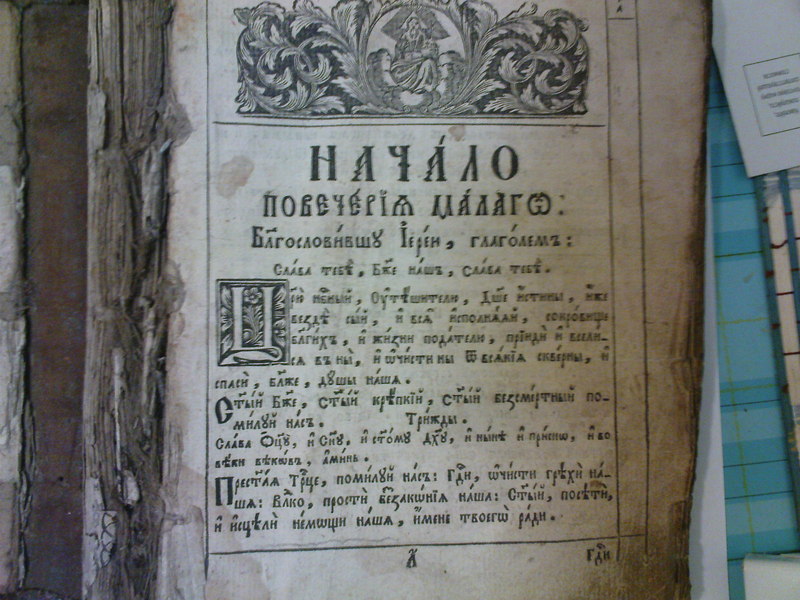 НАЧА́ЛО
ПОВЕЧЕ́РІѦ МА́ЛАГѠ:
Бл҃гослови́вшу І҆ере́и, глаго́лемъ:
Сла́ва тебѣ̀, Бж҃е на́шъ, сла́ва тебѣ̀.
Цр҃ю̀ нб҃ный, Оу҆тѣ́шителю, Дш҃е и҆́стины, и҆́же
вездѣ̀ сы́й, и҆ всѧ̑ и҆сполнѧ́ѧй, сокро́вище
бл҃ги́хъ, и҆ жи́зни пода́телю, прїидѝ и҆ всели́-
сѧ въ ны̀, и҆ ѡ҆чи́сти ны̀ ѿ всѧ́кїѧ скве́рны, и҆
спасѝ, бл҃же, ду́шы на́шѧ.
Ст҃ы́й Бж҃е, Ст҃ы́й крѣ́пкїй, Ст҃ы́й безсме́ртный по-
ми́луй на́съ. Три́жды.
Сла́ва Ѻ҆ц҃у̀, и҆ Сн҃у, и҆ ст҃о́му Дх҃у, и҆ ны́нѣ и҆ при́снѡ, и҆ во
вѣ́ки вѣкѡ́въ, а҆ми́нь.
Прест҃а́ѧ Трⷪ҇це, поми́луй на́съ: Гдⷭ҇и, ѡ҆чи́сти грѣхѝ на́-
шѧ: Влⷣко, простѝ беззакѡ́нїѧ на́ша: Ст҃ы́й, посѣтѝ,
и҆ и҆сцѣлѝ не́мѡщи на́шѧ, и҆́мене твоегѡ̀ ра́ди.
Гдⷭ҇и